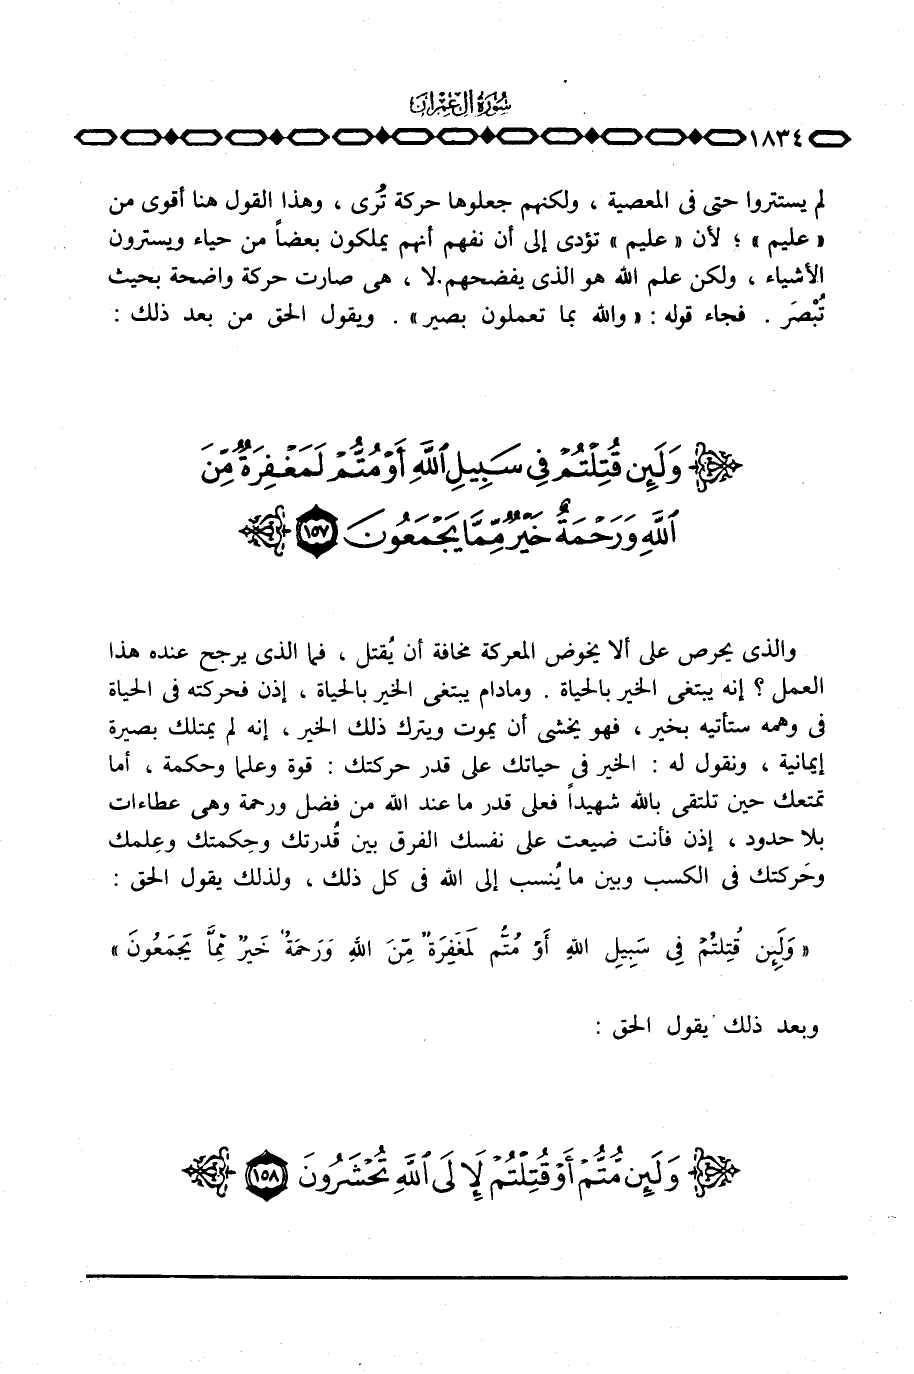 سُورَةُ آلِ عِمْرَانَ
١٨٣٤
لم يستتروا حتى فى المعصية ، ولكنهم جعلوها حركة تُرى ، وهذا القول هنا أقوى من
« عليم » ؛ لأن « عليم » تؤدى إلى أن نفهم أنهم يملكون بعضاً من حياء ويسترون
الأشياء ، ولكن علم الله هو الذى يفضحهم. لا ، هى صارت حركة واضحة بحيث
تُبْصَر . فجاء قوله : « والله بما تعملون بصير » . ويقول الحق من بعد ذلك :
وَلَئِن قُتِلْتُمْ فِى سَبِيلِ ٱللَّهِ أَوْ مُتُّمْ لَمَغْفِرَةٌ مِّنَ
ٱللَّهِ وَرَحْمَةٌ خَيْرٌ مِّمَّا يَجْمَعُونَ ١٥٧
والذى يحرص على ألا يخوض المعركة مخافة أن يُقتل ، فما الذى يرجح عنده هذا
العمل ؟ إنه يبتغى الخير بالحياة . ومادام يبتغى الخير بالحياة ، إذن فحركته فى الحياة
فى وهمه ستأتيه بخير ، فهو يخشى أن يموت ويترك ذلك الخير ، إنه لم يمتلك بصيرة
إيمانية ، ونقول له : الخير فى حياتك على قدر حركتك : قوة وعلما وحكمة ، أما
تمتعك حين تلتقى بالله شهيداً فعلى قدر ما عند الله من فضل ورحمة وهى عطاءات
بلا حدود ، إذن فأنت ضيعت على نفسك الفرق بين قُدرتك وحِكمتك وعِلمك
وحَركتك فى الكسب وبين ما يُنسب إلى الله فى كل ذلك ، ولذلك يقول الحق :
« وَلَئِن قُتِلتُمْ فِى سَبِيلِ اللهِ أَوْ مُتُّم لَمَغْفِرَةٌ مِّنَ اللهِ وَرَحْمَةٌ خَيرٌ مِّمَّا يَجْمَعُونَ »
وبعد ذلك يقول الحق :
وَلَئِن مُّتُّمْ أَوْ قُتِلْتُمْ لَإِلَى ٱللَّهِ تُحْشَرُونَ ١٥٨